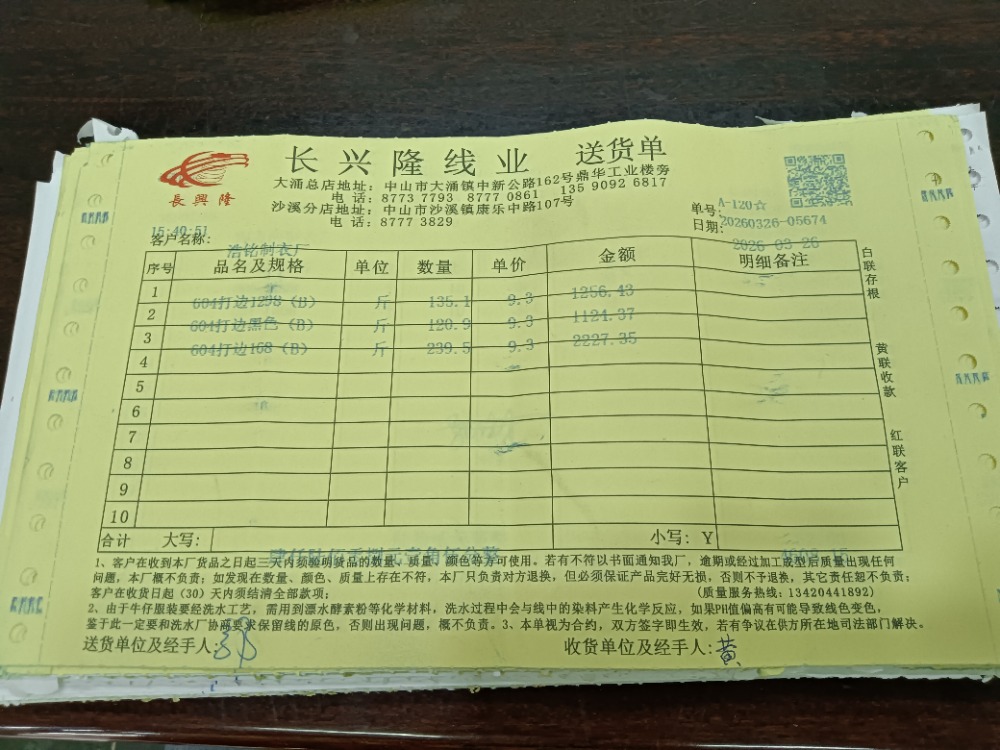 长兴隆线业 送货单
長興隆
大涌总店地址：中山市大涌镇中新公路162号鼎华工业楼旁
电话：8773 7793 8777 0861 135 9092 6817
沙溪分店地址：中山市沙溪镇康乐中路107号
电话：8777 3829
单号：A-120☆
20260326-05674
日期：2026-03-26
15:40:51
客户名称：浩铭制衣厂
序号 品名及规格 单位 数量 单价 金额 明细备注
1 604打边1298（B） 斤 135.1 9.3 1256.43
2 604打边黑色（B） 斤 120.9 9.3 1124.37
3 604打边168（B） 斤 239.5 9.3 2227.35
4
5
6
7
8
9
10
合计 大写： 小写：Y
白联存根
黄联收款
红联客户
1、客户在收到本厂货品之日起三天内须验明货品的数量、质量、颜色等方可使用。若有不符以书面通知我厂，逾期或经过加工成型后质量出现任何
问题，本厂概不负责；如发现在数量、颜色、质量上存在不符，本厂只负责对方退换，但必须保证产品完好无损，否则不予退换，其它责任恕不负责；
客户在收货日起（30）天内须结清全部款项； （质量服务热线：13420441892）
2、由于牛仔服装要经洗水工艺，需用到漂水酵素粉等化学材料，洗水过程中会与线中的染料产生化学反应，如果PH值偏高有可能导致线色变色，
鉴于此一定要和洗水厂协商要求保留线的原色，否则出现问题，概不负责。3、本单视为合约，双方签字即生效，若有争议在供方所在地司法部门解决。
送货单位及经手人： 收货单位及经手人：黄